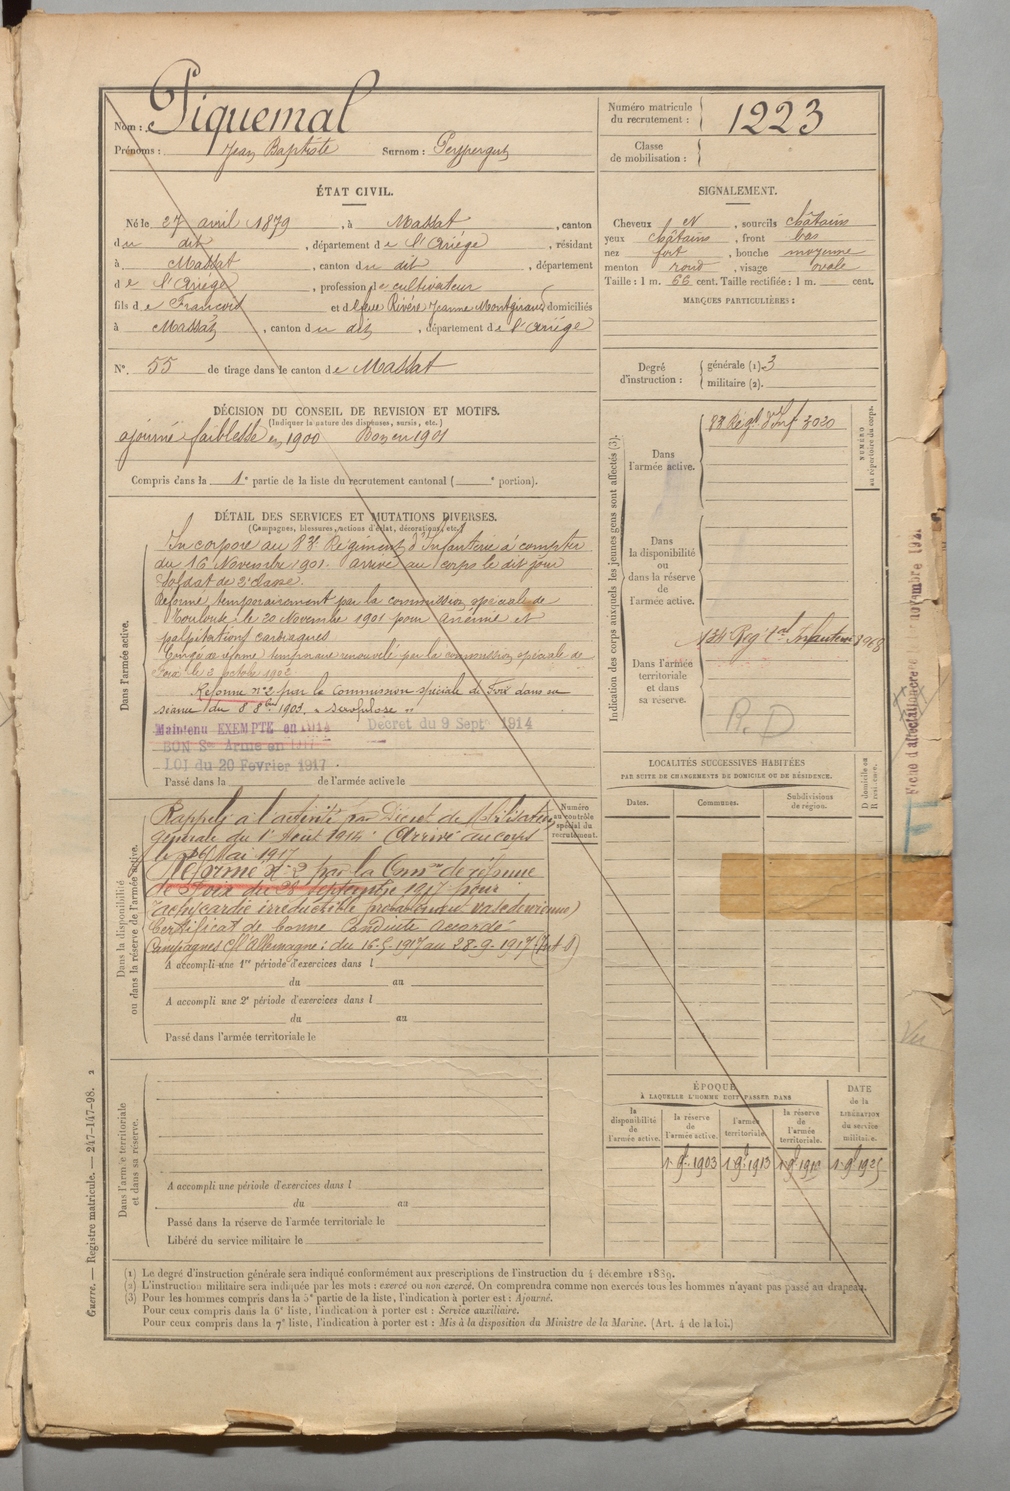 Nom : Piquemal
Prénoms : Jean Baptiste Surnom :
Numéro matricule du recrutement : 1223
Classe de mobilisation :
ÉTAT CIVIL.
Né le 27 avril 1879, à Massat, canton
du dit, département de l'Ariège, résidant
à Massat, canton du dit, département
de l'Ariège, profession de cultivateur
fils de François et de Rivère Jeanne domiciliés
à Massat, canton du dit, département de l'Ariège
N°. 55 de tirage dans le canton de Massat
SIGNALEMENT.
Cheveux N, sourcils châtains
yeux châtains, front bas
nez fort, bouche moyenne
menton rond, visage ovale
Taille : 1 m. 66 cent. Taille rectifiée : 1 m. cent.
MARQUES PARTICULIÈRES :
Degré d'instruction : générale (1). 3
militaire (2).
DÉCISION DU CONSEIL DE REVISION ET MOTIFS.
(Indiquer la nature des dispenses, sursis, etc.)
ajourné faiblesse en 1900 Bon en 1901
Compris dans la 1e partie de la liste du recrutement cantonal ( e portion).
DÉTAIL DES SERVICES ET MUTATIONS DIVERSES.
(Campagnes, blessures, actions d'éclat, décorations, etc.)
Dans l'armée active.
Incorporé au 83e Régiment d'Infanterie à compter
du 16 Novembre 1901. arrivé au corps le dit jour
Soldat de 2e classe.
Réformé temporairement par la commission spéciale de
Toulouse le 20 Novembre 1901 pour anémie et
palpitations cardiaques
Congé de réforme temporaire renouvelé par la commission spéciale de
Foix le 3 octobre 1902
Réformé n° 2 par la Commission spéciale de Foix dans sa
séance du 8 8bre 1903. "scrofulose"
Maintenu EXEMPTÉ en 1914 Décret du 9 Sept 1914
BON Sce Armé en 1917
LOI du 20 Fevrier 1917
Passé dans la de l'armée active le
Dans la disponibilité ou dans la réserve de l'armée active.
Rappelé à l'activité par Décret de Mobilisation
générale du 1er Août 1914. Arrivé au corps
le 16 Mai 1917
Réformé N° 2 par la Comon de réforme
de Foix du 28 septembre 1917 pour
Tachycardie irréductible
Certificat de bonne Conduite accordé
Campagnes c/ l'Allemagne : du 16-5-1917 au 28-9-1917
A accompli une 1re période d'exercices dans l
du au
A accompli une 2e période d'exercices dans l
du au
Passé dans l'armée territoriale le
Numéro au contrôle spécial du recrutement.
Dans l'armée territoriale et dans sa réserve.
A accompli une période d'exercices dans l
du au
Passé dans la réserve de l'armée territoriale le
Libéré du service militaire le
Indication des corps auxquels les jeunes gens sont affectés (3).
NUMÉRO au répertoire du corps.
Dans l'armée active.
83 Régt d'Inf 3020
Dans la disponibilité ou dans la réserve de l'armée active.
Dans l'armée territoriale et dans sa réserve.
134 Régt d'Infanterie
R. D
LOCALITÉS SUCCESSIVES HABITÉES
PAR SUITE DE CHANGEMENTS DE DOMICILE OU DE RÉSIDENCE.
D domicile ou R résidence.
Dates. Communes. Subdivisions de région.
ÉPOQUE
À LAQUELLE L'HOMME DOIT PASSER DANS
la disponibilité de l'armée active.
la réserve de l'armée active.
l'armée territoriale.
la réserve de l'armée territoriale.
DATE de la LIBÉRATION du service militaire.
1er 9bre 1903 1 9bre 1913 1 9bre 1919 1 9bre 1925
Fiche d'affectation
Vu
(1) Le degré d'instruction générale sera indiqué conformément aux prescriptions de l'instruction du 4 décembre 1889.
(2) L'instruction militaire sera indiquée par les mots : exercé ou non exercé. On comprendra comme non exercés tous les hommes n'ayant pas passé au drapeau.
(3) Pour les hommes compris dans la 5e partie de la liste, l'indication à porter est : Ajourné.
Pour ceux compris dans la 6e liste, l'indication à porter est : Service auxiliaire.
Pour ceux compris dans la 7e liste, l'indication à porter est : Mis à la disposition du Ministre de la Marine. (Art. 4 de la loi.)
Guerre. — Registre matricule. — 247-147-98. 2